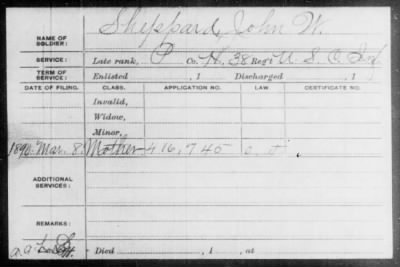 NAME OF SOLDIER: Sheppard, John W.
SERVICE: Late rank, P Co. H, 38 Reg't U. S. C. Inf
TERM OF SERVICE: Enlisted , 1 Discharged , 1
DATE OF FILING. CLASS. APPLICATION NO. LAW CERTIFICATE NO.
Invalid,
Widow,
Minor,
Mar. 8. Mother 416,745
ADDITIONAL SERVICES:
REMARKS:
Died , 1 , at